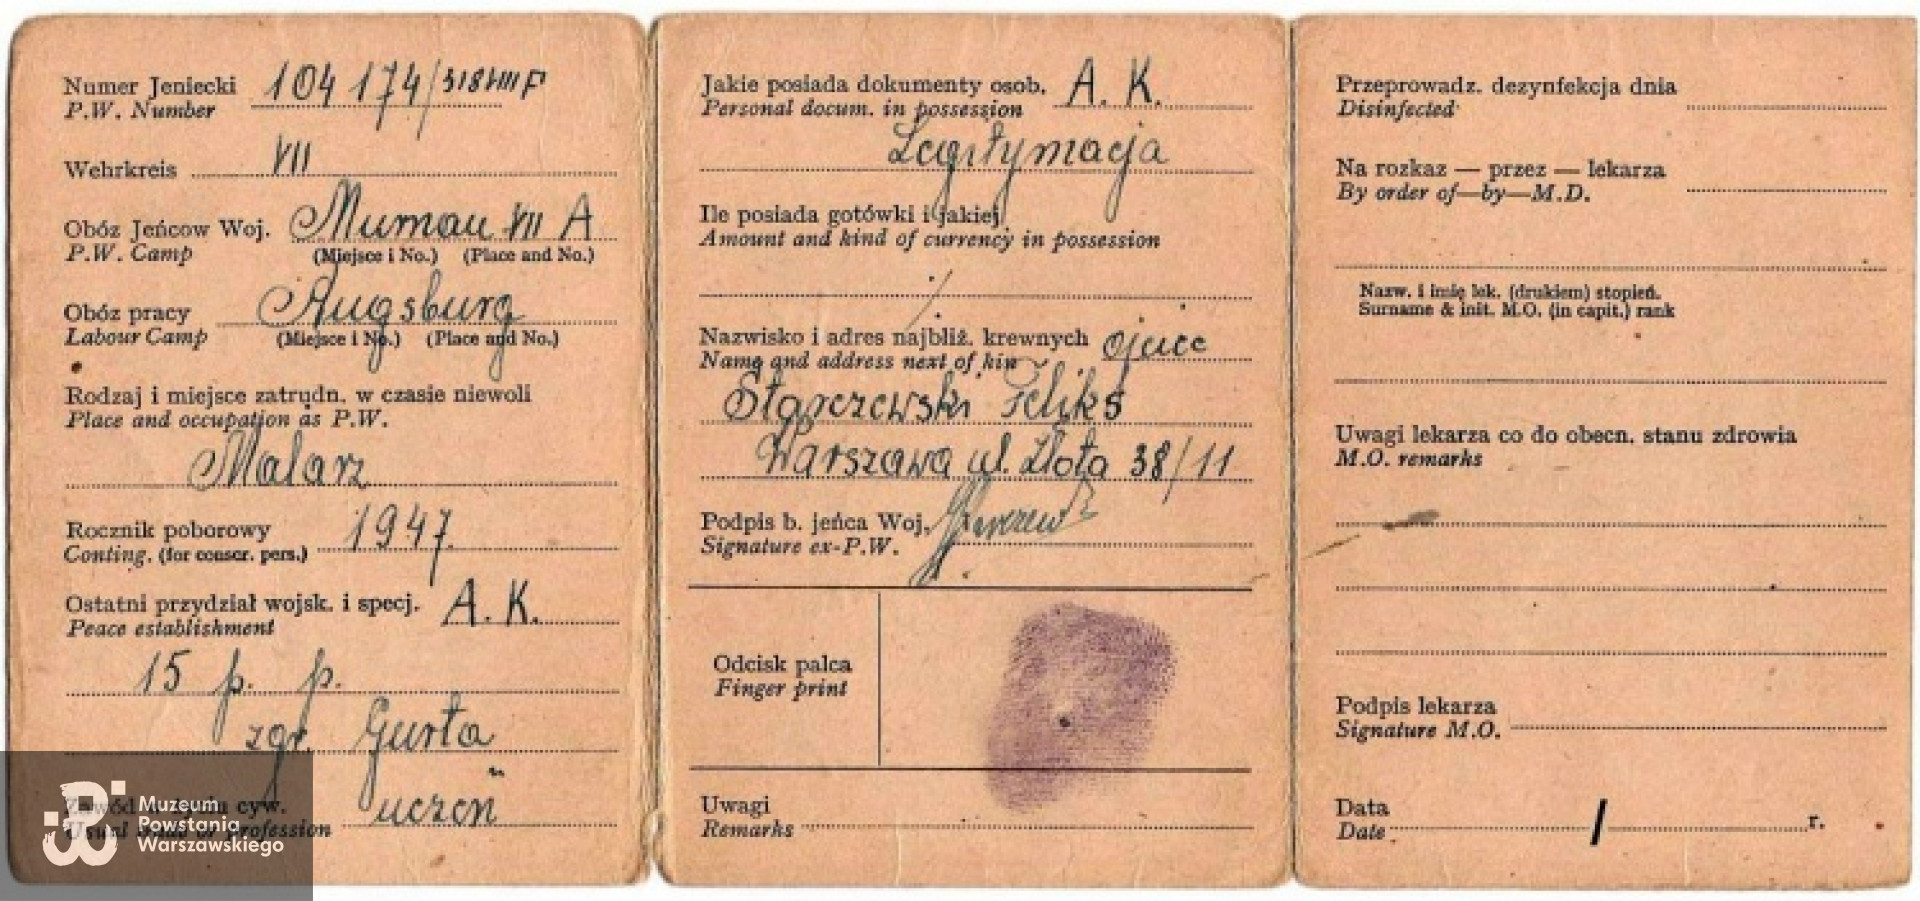 Numer Jeniecki 104 174/318 VII F
P.W. Number
Wehrkreis VII
Obóz Jeńcow Woj. Murnau VII A
P.W. Camp (Miejsce i No.) (Place and No.)
Obóz pracy Augsburg
Labour Camp (Miejsce i No.) (Place and No.)
Rodzaj i miejsce zatrudn. w czasie niewoli
Place and occupation as P.W.
Malarz
Rocznik poborowy 1947
Conting. (for conscr. pers.)
Ostatni przydział wojsk. i specj. A. K.
Peace establishment
15 p. p.
zgr. Gurta
cyw. uczeń
Usual or profession
Muzeum
Powstania
Warszawskiego
Jakie posiada dokumenty osob. A. K.
Personal docum. in possession
Legitymacja
Ile posiada gotówki i jakiej
Amount and kind of currency in possession
Nazwisko i adres najbliż. krewnych ojciec
Name and address next of kin
Starczewski Feliks
Warszawa ul. Złota 38/11
Podpis b. jeńca Woj.
Signature ex-P.W.
Odcisk palca
Finger print
Uwagi
Remarks
Przeprowadz. dezynfekcja dnia
Disinfected
Na rozkaz — przez — lekarza
By order of—by—M.D.
Nazw. i imię lek. (drukiem) stopień.
Surname & init. M.O. (in capit.) rank
Uwagi lekarza co do obecn. stanu zdrowia
M.O. remarks
Podpis lekarza
Signature M.O.
Data
Date / r.